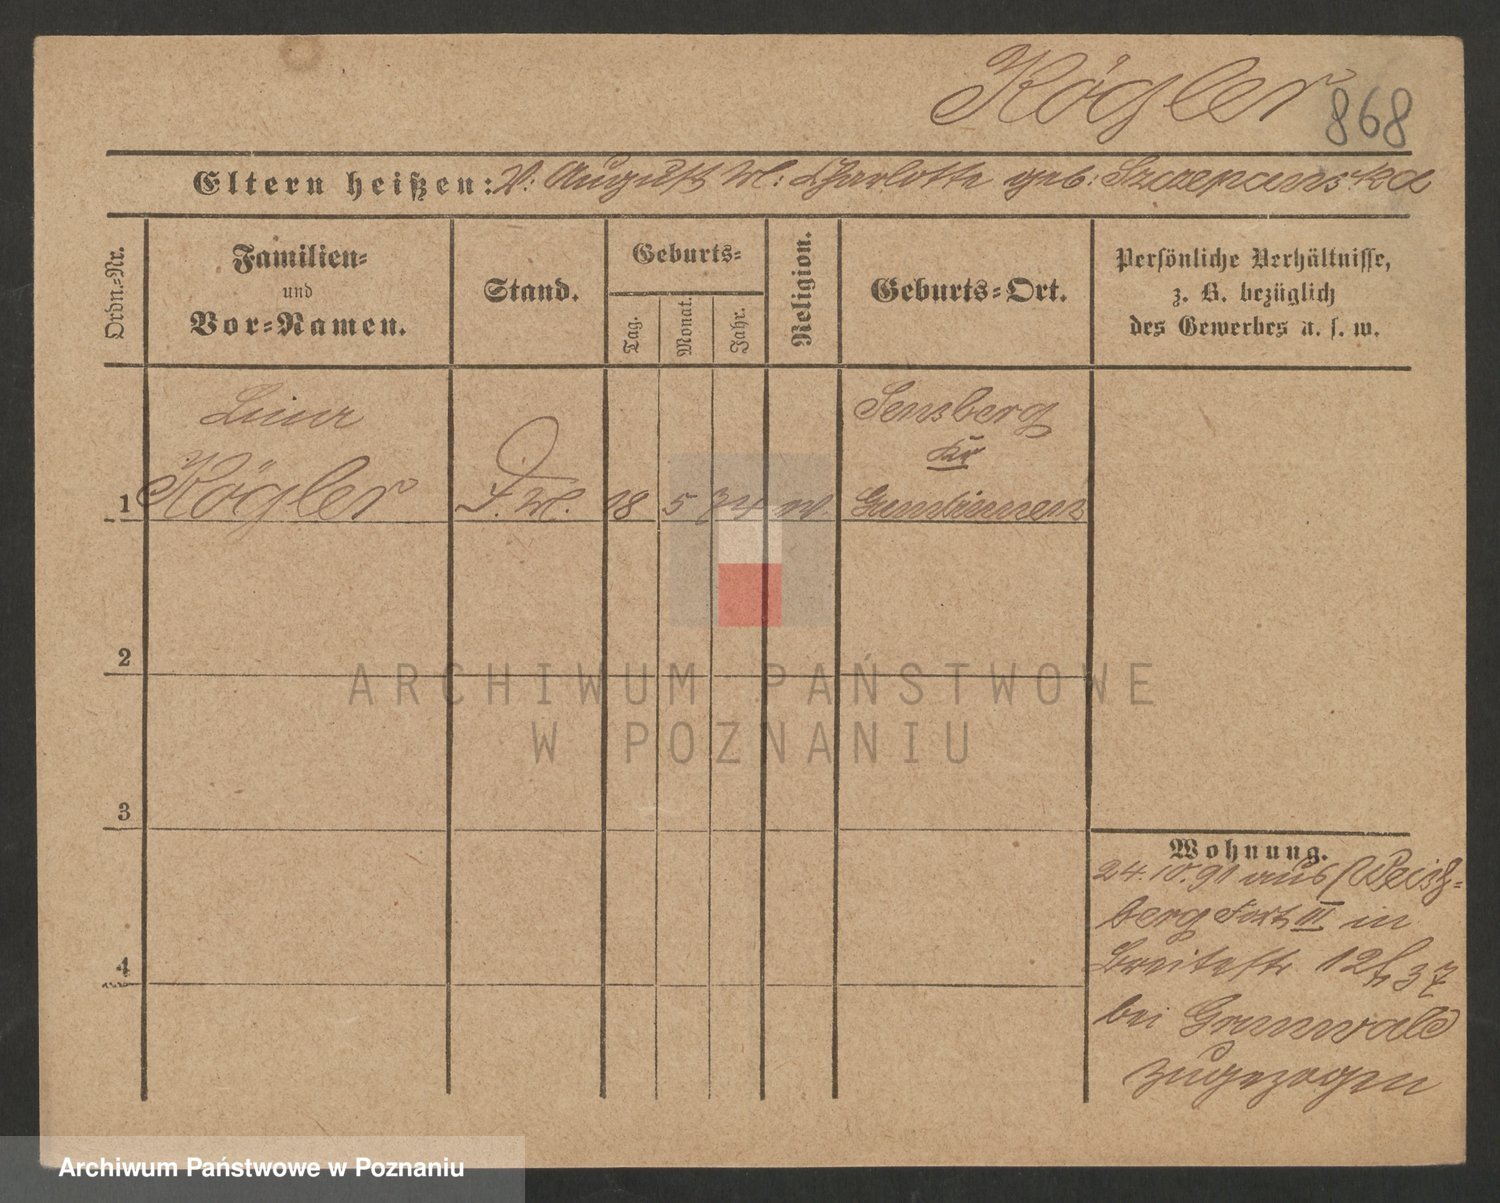 Kögler 868
Eltern heißen: V: August M: Charlotte geb: Szczepanska
Ordn.-Nr.
Familien-
und
Vor-Namen.
Stand.
Geburts-
Tag.
Monat.
Jahr.
Religion.
Geburts-Ort.
Persönliche Verhältnisse,
z. B. bezüglich
des Gewerbes u. s. w.
Lina
Kögler
18 5 74
Sensberg
Kr
Gumbinnen
1
2
3
4
Wohnung.
24.10.91 aus
berg Fort III in
Breitestr 12 37
bei Grunwald
zugezogen
ARCHIWUM PAŃSTWOWE
W POZNANIU
Archiwum Państwowe w Poznaniu